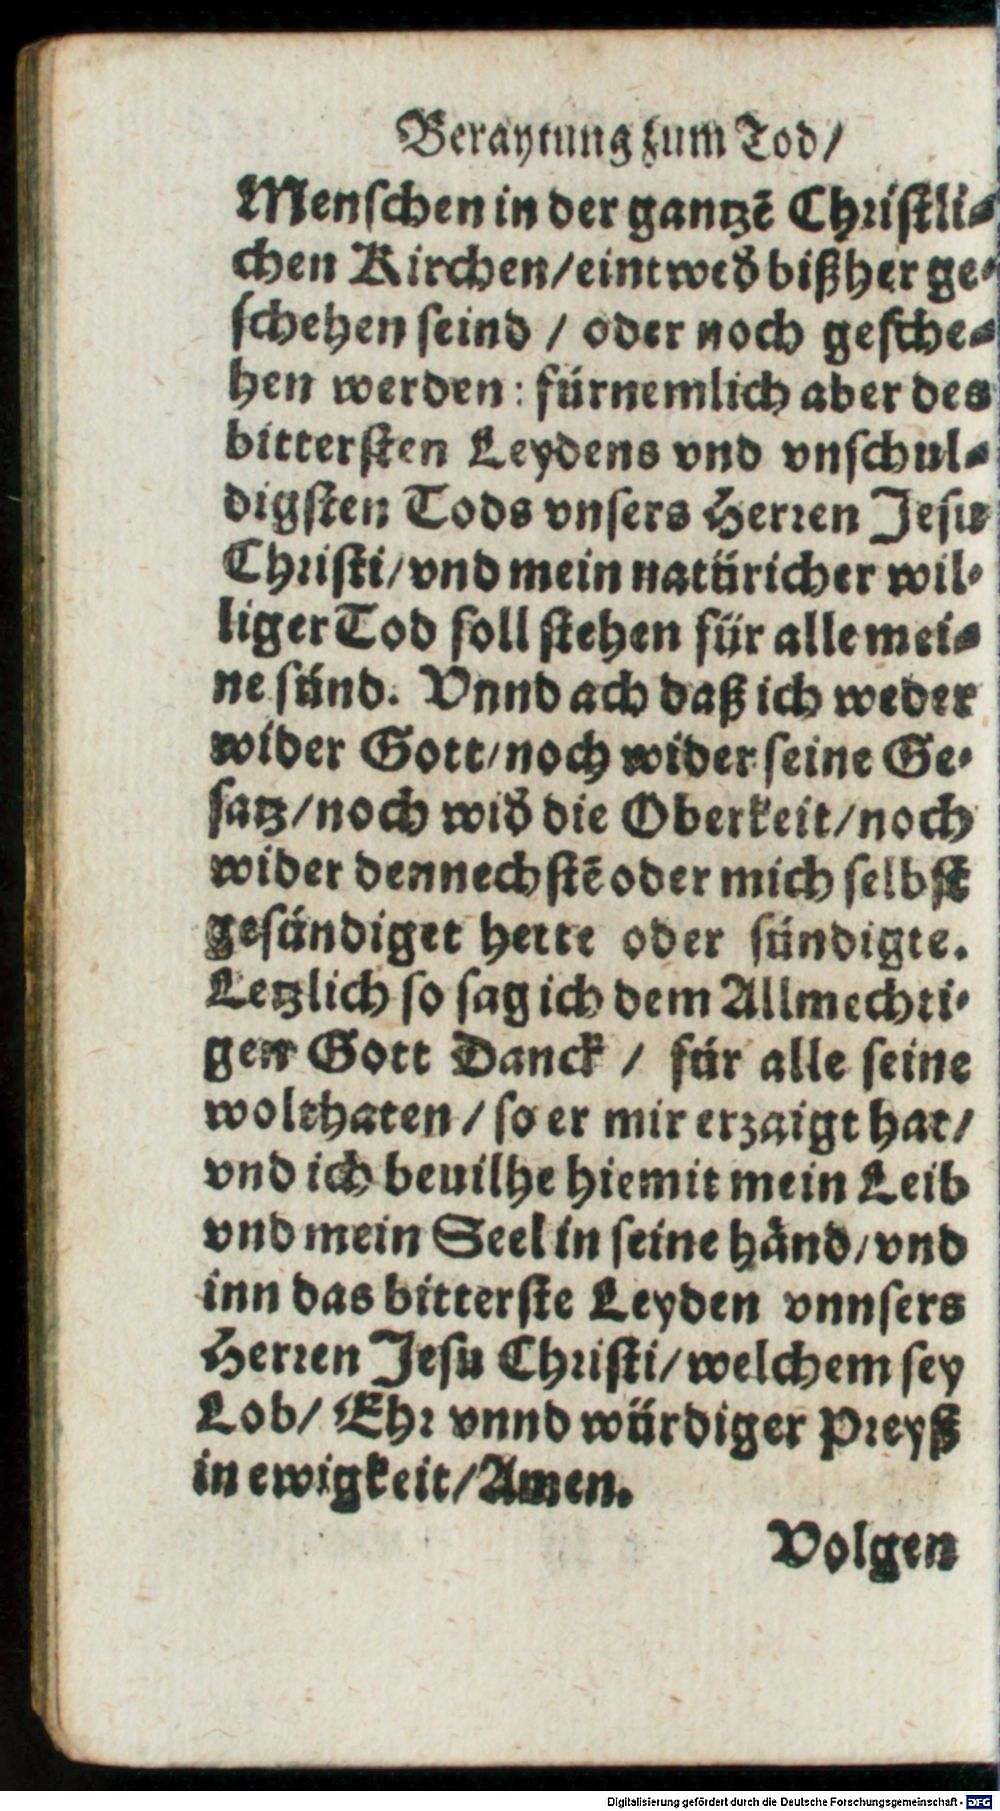 Beraytung zum Tod/
Menschen in der gantzē Christli⸗
chen Kirchen/eintwed̕ bißher ge⸗
schehen seind / oder noch gesche⸗
hen werden: fürnemlich aber des
bittersten Leydens vnd vnschul⸗
digsten Tods vnsers Herren Jesu
Christi/vnd mein natüricher wil⸗
liger Tod soll stehen für alle mei⸗
ne sünd. Vnnd ach daß ich weder
wider Gott/noch wider seine Ge⸗
satz/noch wid̕ die Oberkeit/noch
wider den nechstē oder mich selbst
gesündiget hette oder sündigte.
Letzlich so sag ich dem Allmechti⸗
gen Gott Danck / für alle seine
wolthaten/so er mir erzaigt hat/
vnd ich beuilhe hiemit mein Leib
vnd mein Seel in seine händ/vnd
inn das bitterste Leyden vnnsers
Herren Jesu Christi/welchem sey
Lob/ Ehr vnnd würdiger Preyß
in ewigkeit/Amen.
Volgen
Digitalisierung gefördert durch die Deutsche Forschungsgemeinschaft - DFG